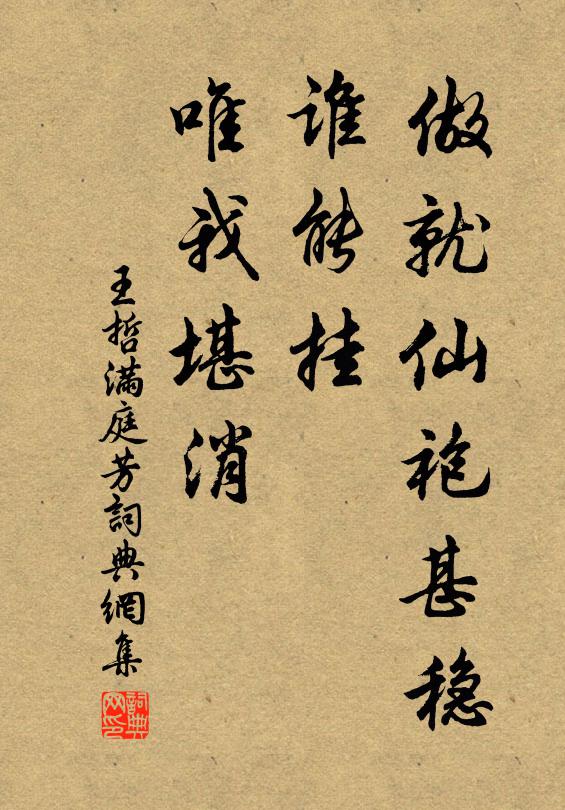 做就仙袍甚稳
谁能挂
唯我堪消
王哲满庭芳詞典網集
詞典网印